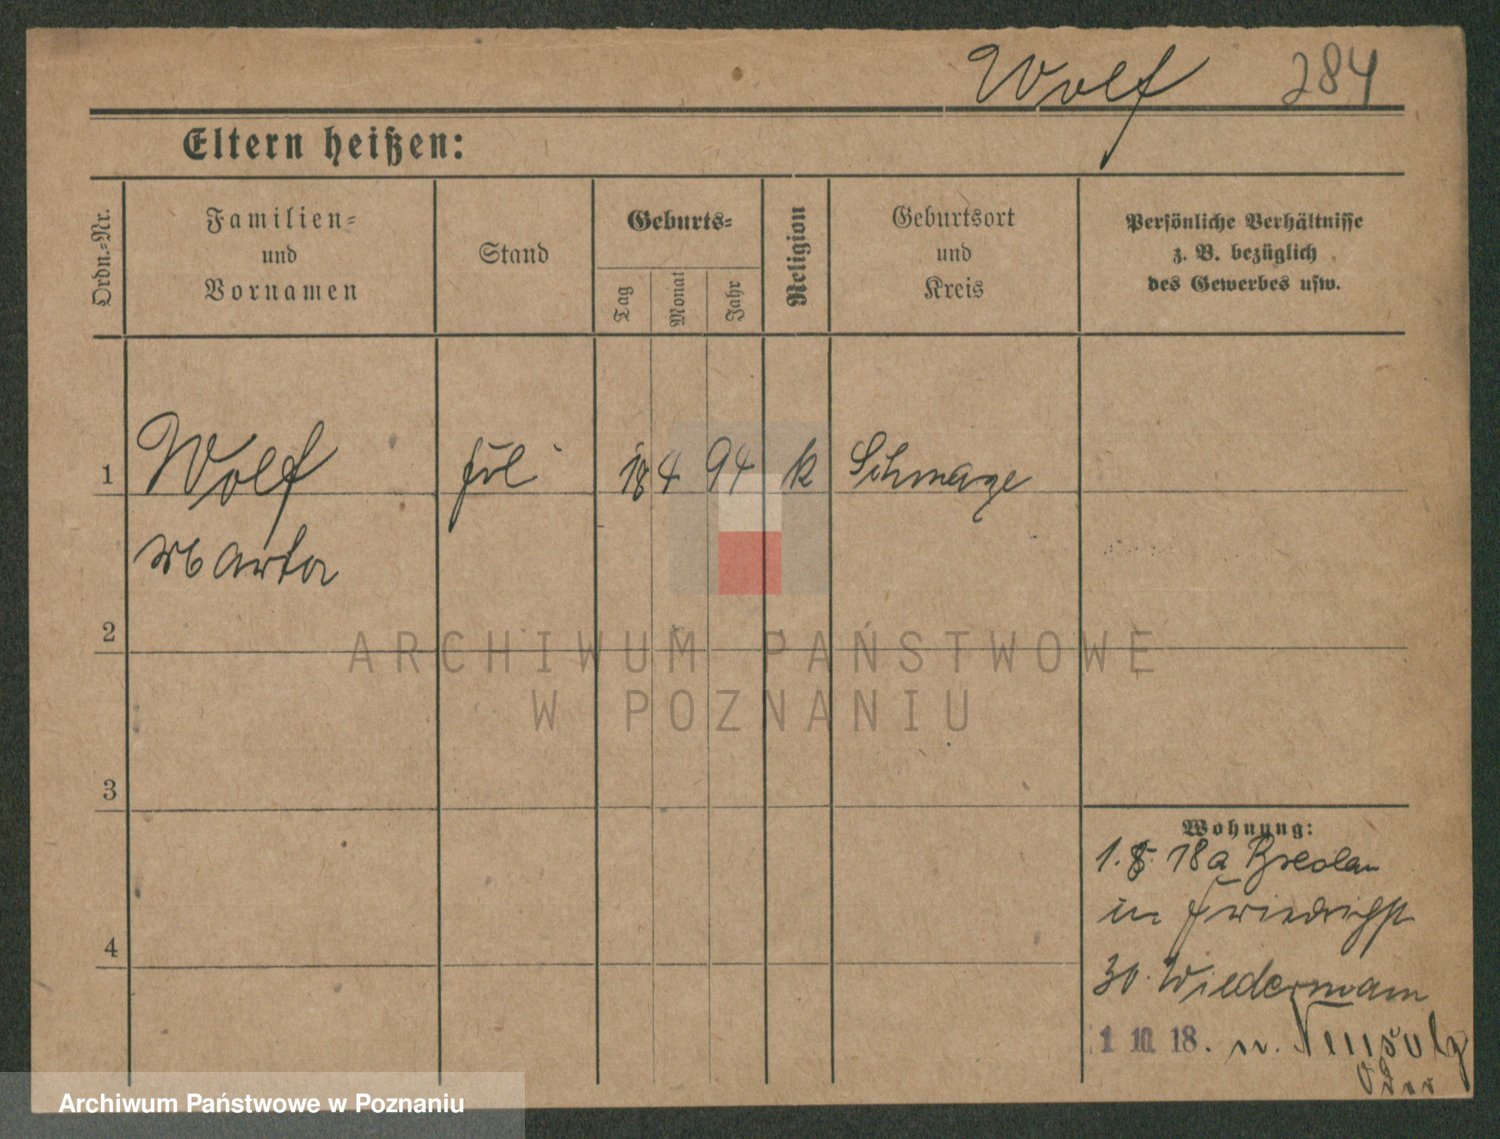 Wolf 284
Eltern heißen:
Ordn.-Nr.
Familien-
und
Vornamen
Stand
Geburts-
Tag
Monat
Jahr
Religion
Geburtsort
und
Kreis
Persönliche Verhältnisse
z. B. bezüglich
des Gewerbes usw.
1 Wolf 18 4 94 k Schmage
Marta
2
ARCHIWUM PAŃSTWOWE
W POZNANIU
3
Wohnung:
1. 8. 18 a Breslau
in Friedrichst
4
30. Wiedermann
1 10 18. n. Neusalz
Oder
Archiwum Państwowe w Poznaniu